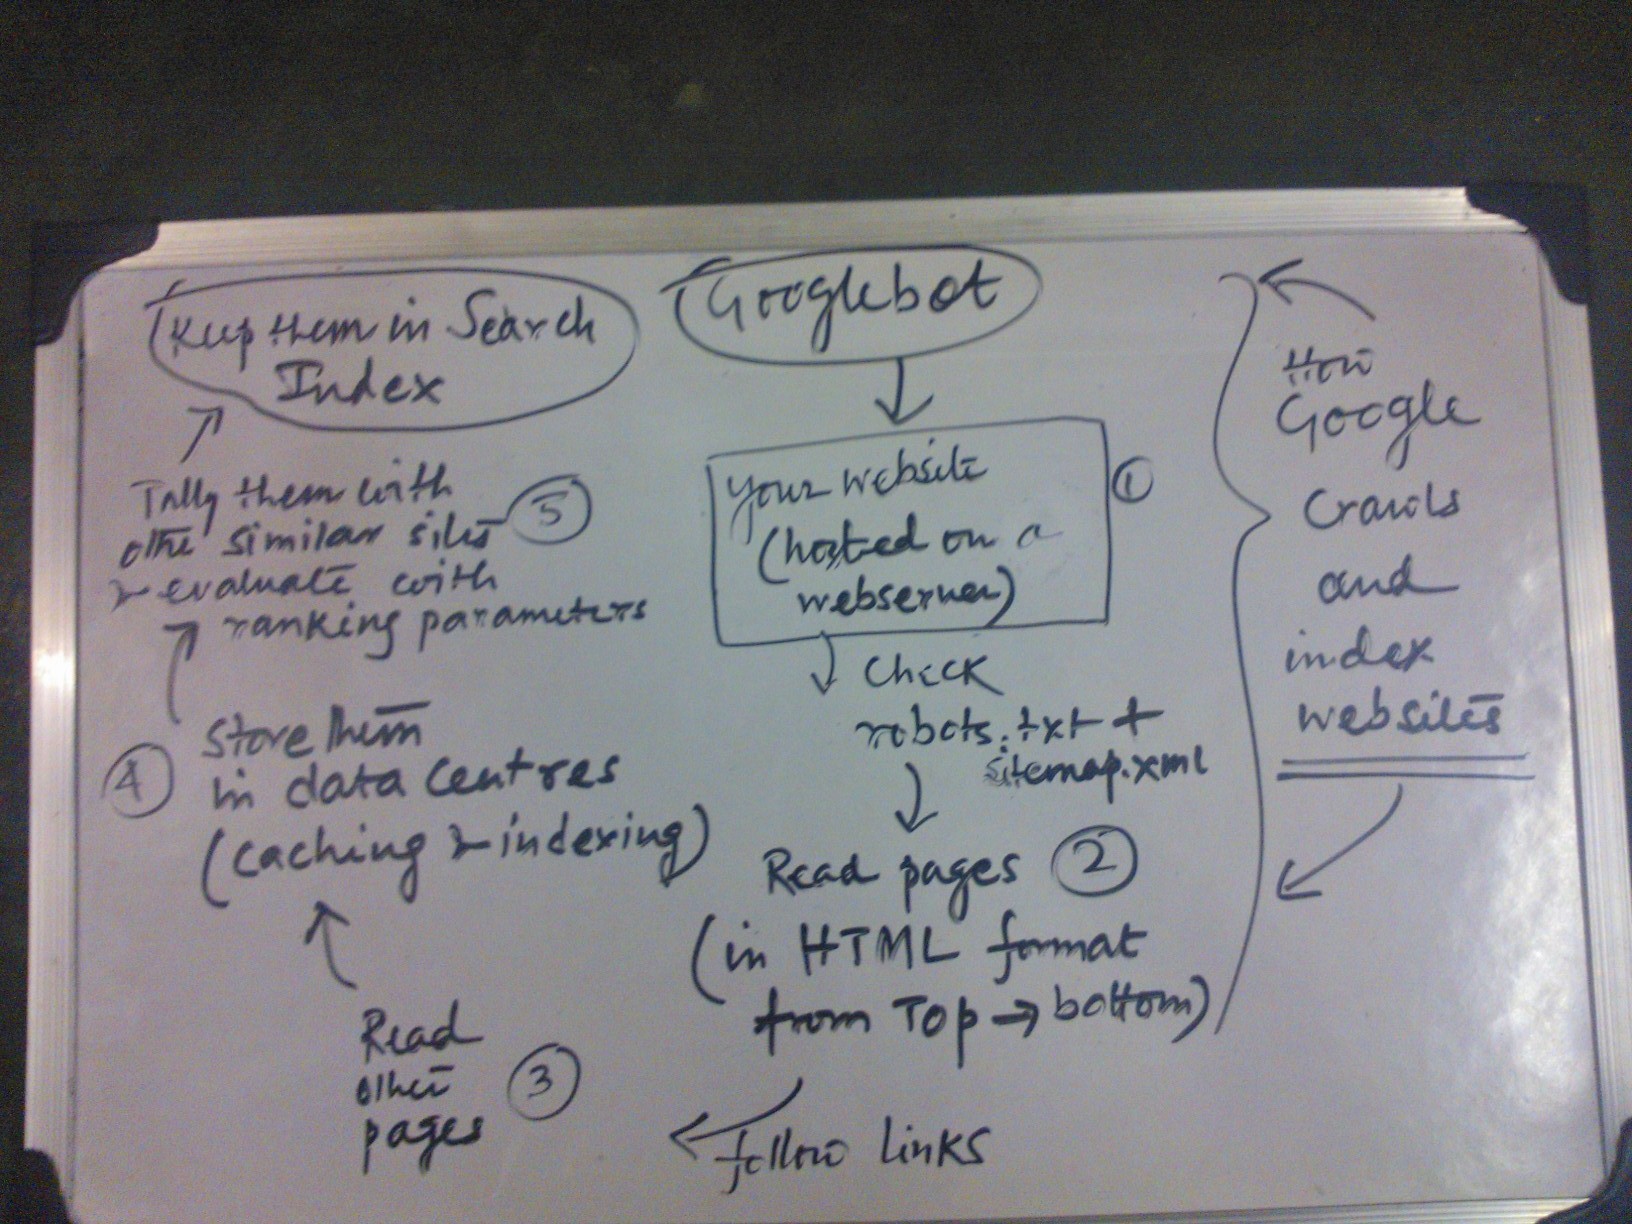 Googlebot
Your website
(hosted on a
webserver)
1
Check
robots.txt +
sitemap.xml
Read pages 2
(in HTML format
from Top → bottom)
follow links
Read
other
pages
3
4
Store them
in data centres
(caching & indexing)
Tally them with
other similar sites 5
& evaluate with
ranking parameters
Keep them in Search
Index
How
Google
Crawls
and
index
websites